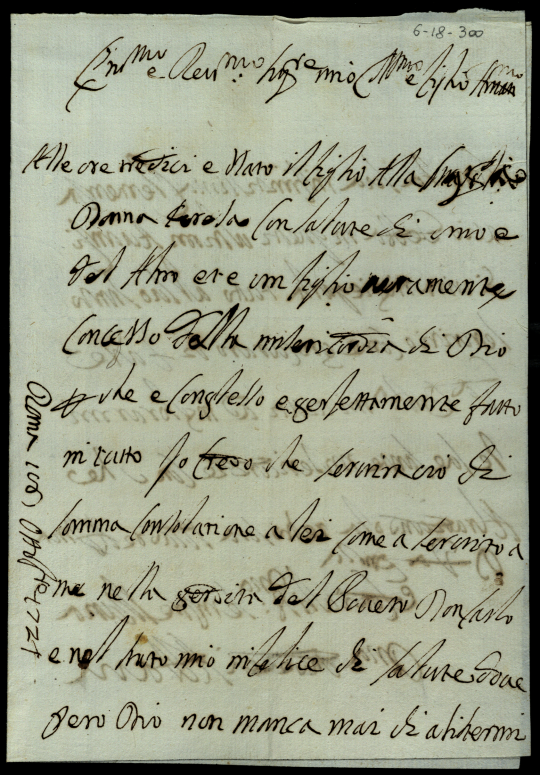 6-18-300
e Rev.mo Sig.re mio e figlio
Alle ore tredici e nato il figlio alla
Donna Teresa con salute di uno e
del altro et e un figlio veramente
Concesso della misericordia di Dio
che e Complesso e perfettamente fatto
in tutto Jo Creo che servira di
somma Consolazione a lei come a servito a
me nella perdita del Povero Don Carlo
e nel stato mio infelice di salute dove
pero Dio non manca mai di asistermi
Roma